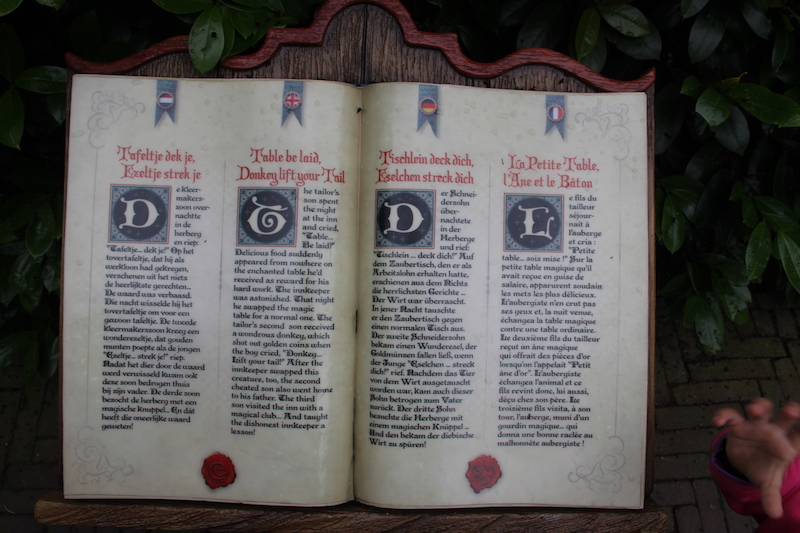 Tafeltje dek je,
Ezeltje strek je
De kleer-
makers-
zoon over-
nachtte
in de
herberg
en riep:
"Tafeltje... dek je!" Op het
tovertafeltje, dat hij als
werkloon had gekregen,
verschenen uit het niets
de heerlijkste gerechten...
De waard was verbaasd.
Die nacht wisselde hij het
tovertafeltje om voor een
gewoon tafeltje. De tweede
kleermakerszoon kreeg een
wonderezeltje, dat gouden
munten poepte als de jongen
"Ezeltje... strek je!" riep.
Nadat het dier door de waard
werd verwisseld kwam ook
deze zoon bedrogen thuis
bij zijn vader. De derde zoon
bezocht de herberg met een
magische knuppel... En dát
heeft die oneerlijke waard
geweten!
Table be laid,
Donkey lift your Tail
The tailor's
son spent
the night
at the inn
and cried,
"Table...
Be laid!"
Delicious food suddenly
appeared from nowhere on
the enchanted table he'd
received as reward for his
hard work. The innkeeper
was astonished. That night
he swapped the magic
table for a normal one. The
tailor's second son received
a wondrous donkey, which
shut out golden coins when
the boy cried, "Donkey...
Lift your tail!" After the
innkeeper swapped this
creature, too, the second
cheated son also went home
to his father. The third
son visited the inn with a
magical club... And taught
the dishonest innkeeper a
lesson!
Tischlein deck dich,
Eselchen streck dich
Der Schnei-
dersohn
über-
nachtete
in der
Herberge
und rief:
"Tischlein ... deck dich!" Auf
dem Zaubertisch, den er als
Arbeitslohn erhalten hatte,
erschienen aus dem Nichts
die herrlichsten Gerichte ...
Der Wirt war überrascht.
In jener Nacht tauschte
er den Zaubertisch gegen
einen normalen Tisch aus.
Der zweite Schneidersohn
bekam einen Wunderesel, der
Goldmünzen fallen ließ, wenn
der Junge "Eselchen ... streck
dich!" rief. Nachdem das Tier
von dem Wirt ausgetauscht
worden war, kam auch dieser
Sohn betrogen zum Vater
zurück. Der dritte Sohn
besuchte die Herberge mit
einem magischen Knüppel ...
Und den bekam der diebische
Wirt zu spüren!
La Petite Table,
l'Ane et le Bâton
Le fils du
tailleur
séjour-
nait à
l'auberge
et cria :
"Petite
table... sois mise !" Sur la
petite table magique qu'il
avait reçue en guise de
salaire, apparurent soudain
les mets les plus délicieux.
L'aubergiste n'en crut pas
ses yeux et, la nuit venue,
échangea la table magique
contre une table ordinaire.
Le deuxième fils du tailleur
reçut un âne magique
qui offrait des pièces d'or
lorsqu'on l'appelait "Petit
âne d'or". L'aubergiste
échangea l'animal et ce
fils revint donc, lui aussi,
déçu chez son père. Le
troisième fils visita, à son
tour, l'auberge, muni d'un
gourdin magique... qui
donna une bonne raclée au
malhonnête aubergiste !